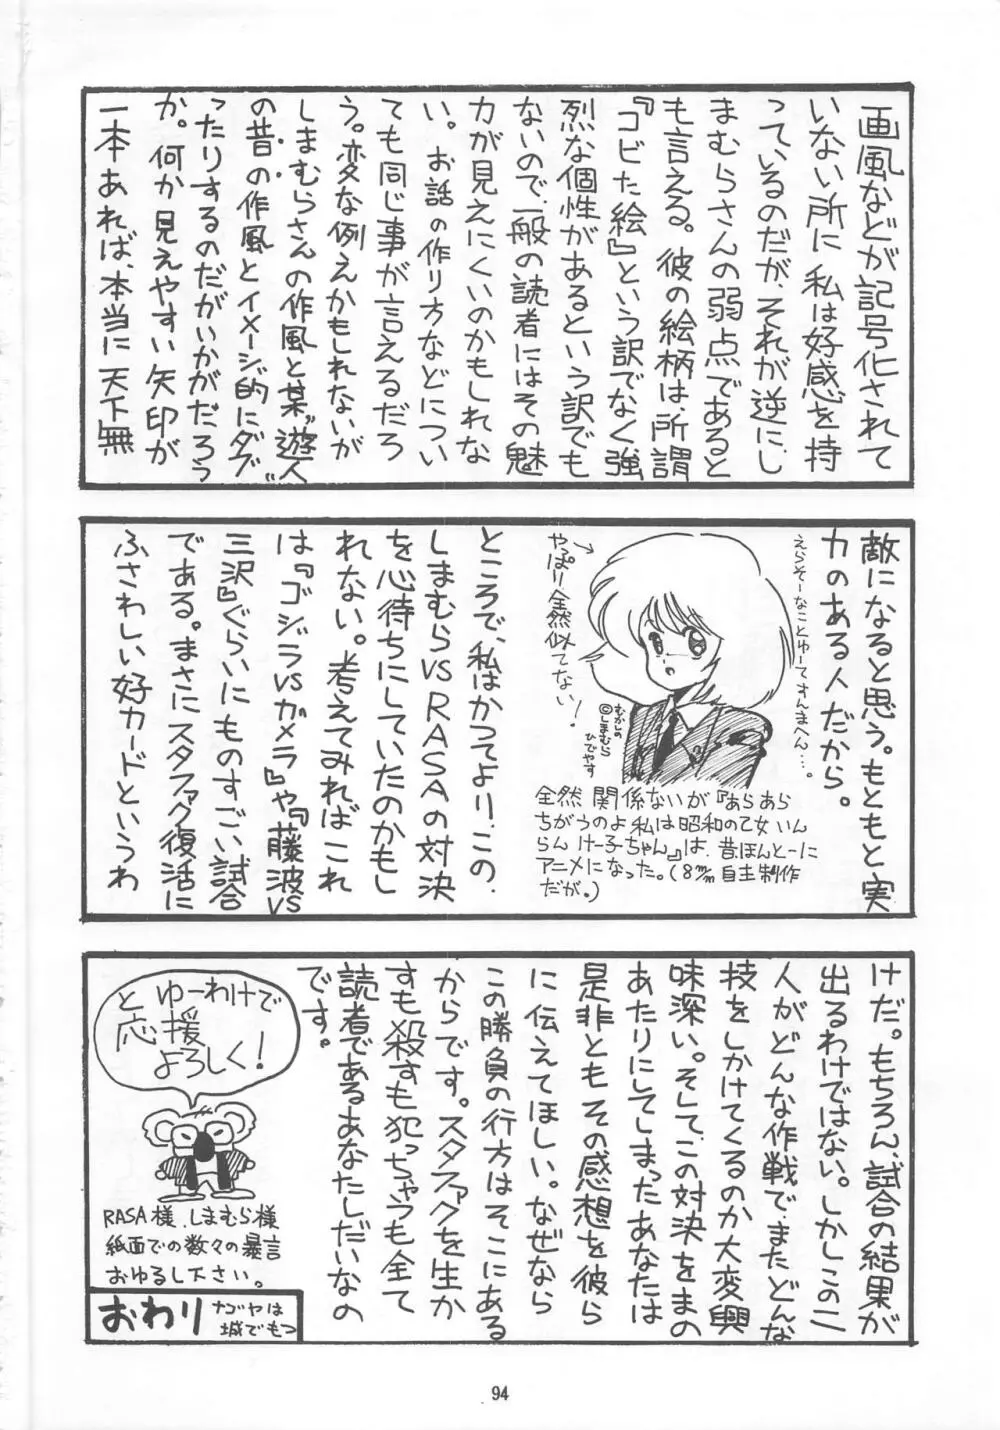 画風などが記号化されて
いない所に私は好感を持
っているのだが、それが逆にし
まむらさんの弱点であると
も言える。彼の絵柄は、所謂
『コビた絵』という訳でなく強
烈な個性があるという訳でも
ないので、一般の読者にはその魅
力が見えにくいのかもしれな
い。お話の作り方などについ
ても同じ事が言えるだろ
う。変な例えかもしれないが
しまむらさんの作風と某〝遊人〟
の昔の作風とイメージ的にダブ
ったりするのだがいかがだろう
か。何か見えやすい矢印が
一本あれば、本当に天下無
敵になると思う。もともと実
力のある人だから。
えらそーなことゆーてすんまへん…。
やっぱり全然似てない!
むかしの
©しまむら
ひでやす
全然関係ないが『あらあら
ちがうのよ私は昭和の乙女いん
らんけー子ちゃん』は、昔ほんとーに
アニメになった。(8m/m自主制作
だが。)
ところで、私はかつてより、この、
しまむらVSRASAの対決
を心待ちにしていたのかもし
れない。考えてみればこれ
は『ゴジラVSガメラ』や『藤波VS
三沢』ぐらいにものすごい試合
である。まさにスタファグ復活に
ふさわしい好カードというわ
けだ。もちろん、試合の結果が
出るわけではない。しかしこの二
人がどんな作戦で、またどんな
技をしかけてくるのか大変興
味深い。そして、この対決をまの
あたりにしてしまったあなたは
是非ともその感想を彼ら
に伝えてほしい。なぜなら
この勝負の行方はそこにある
からです。スタファグを生か
すも殺すも犯っちゃうも全て
読者であるあなたしだいなの
です。
と ゆーわけで
応援
よろしく!
RASA様、しまむら様
紙面での数々の暴言
おゆるし下さい。
おわり
ナゴヤは
城でもつ
94